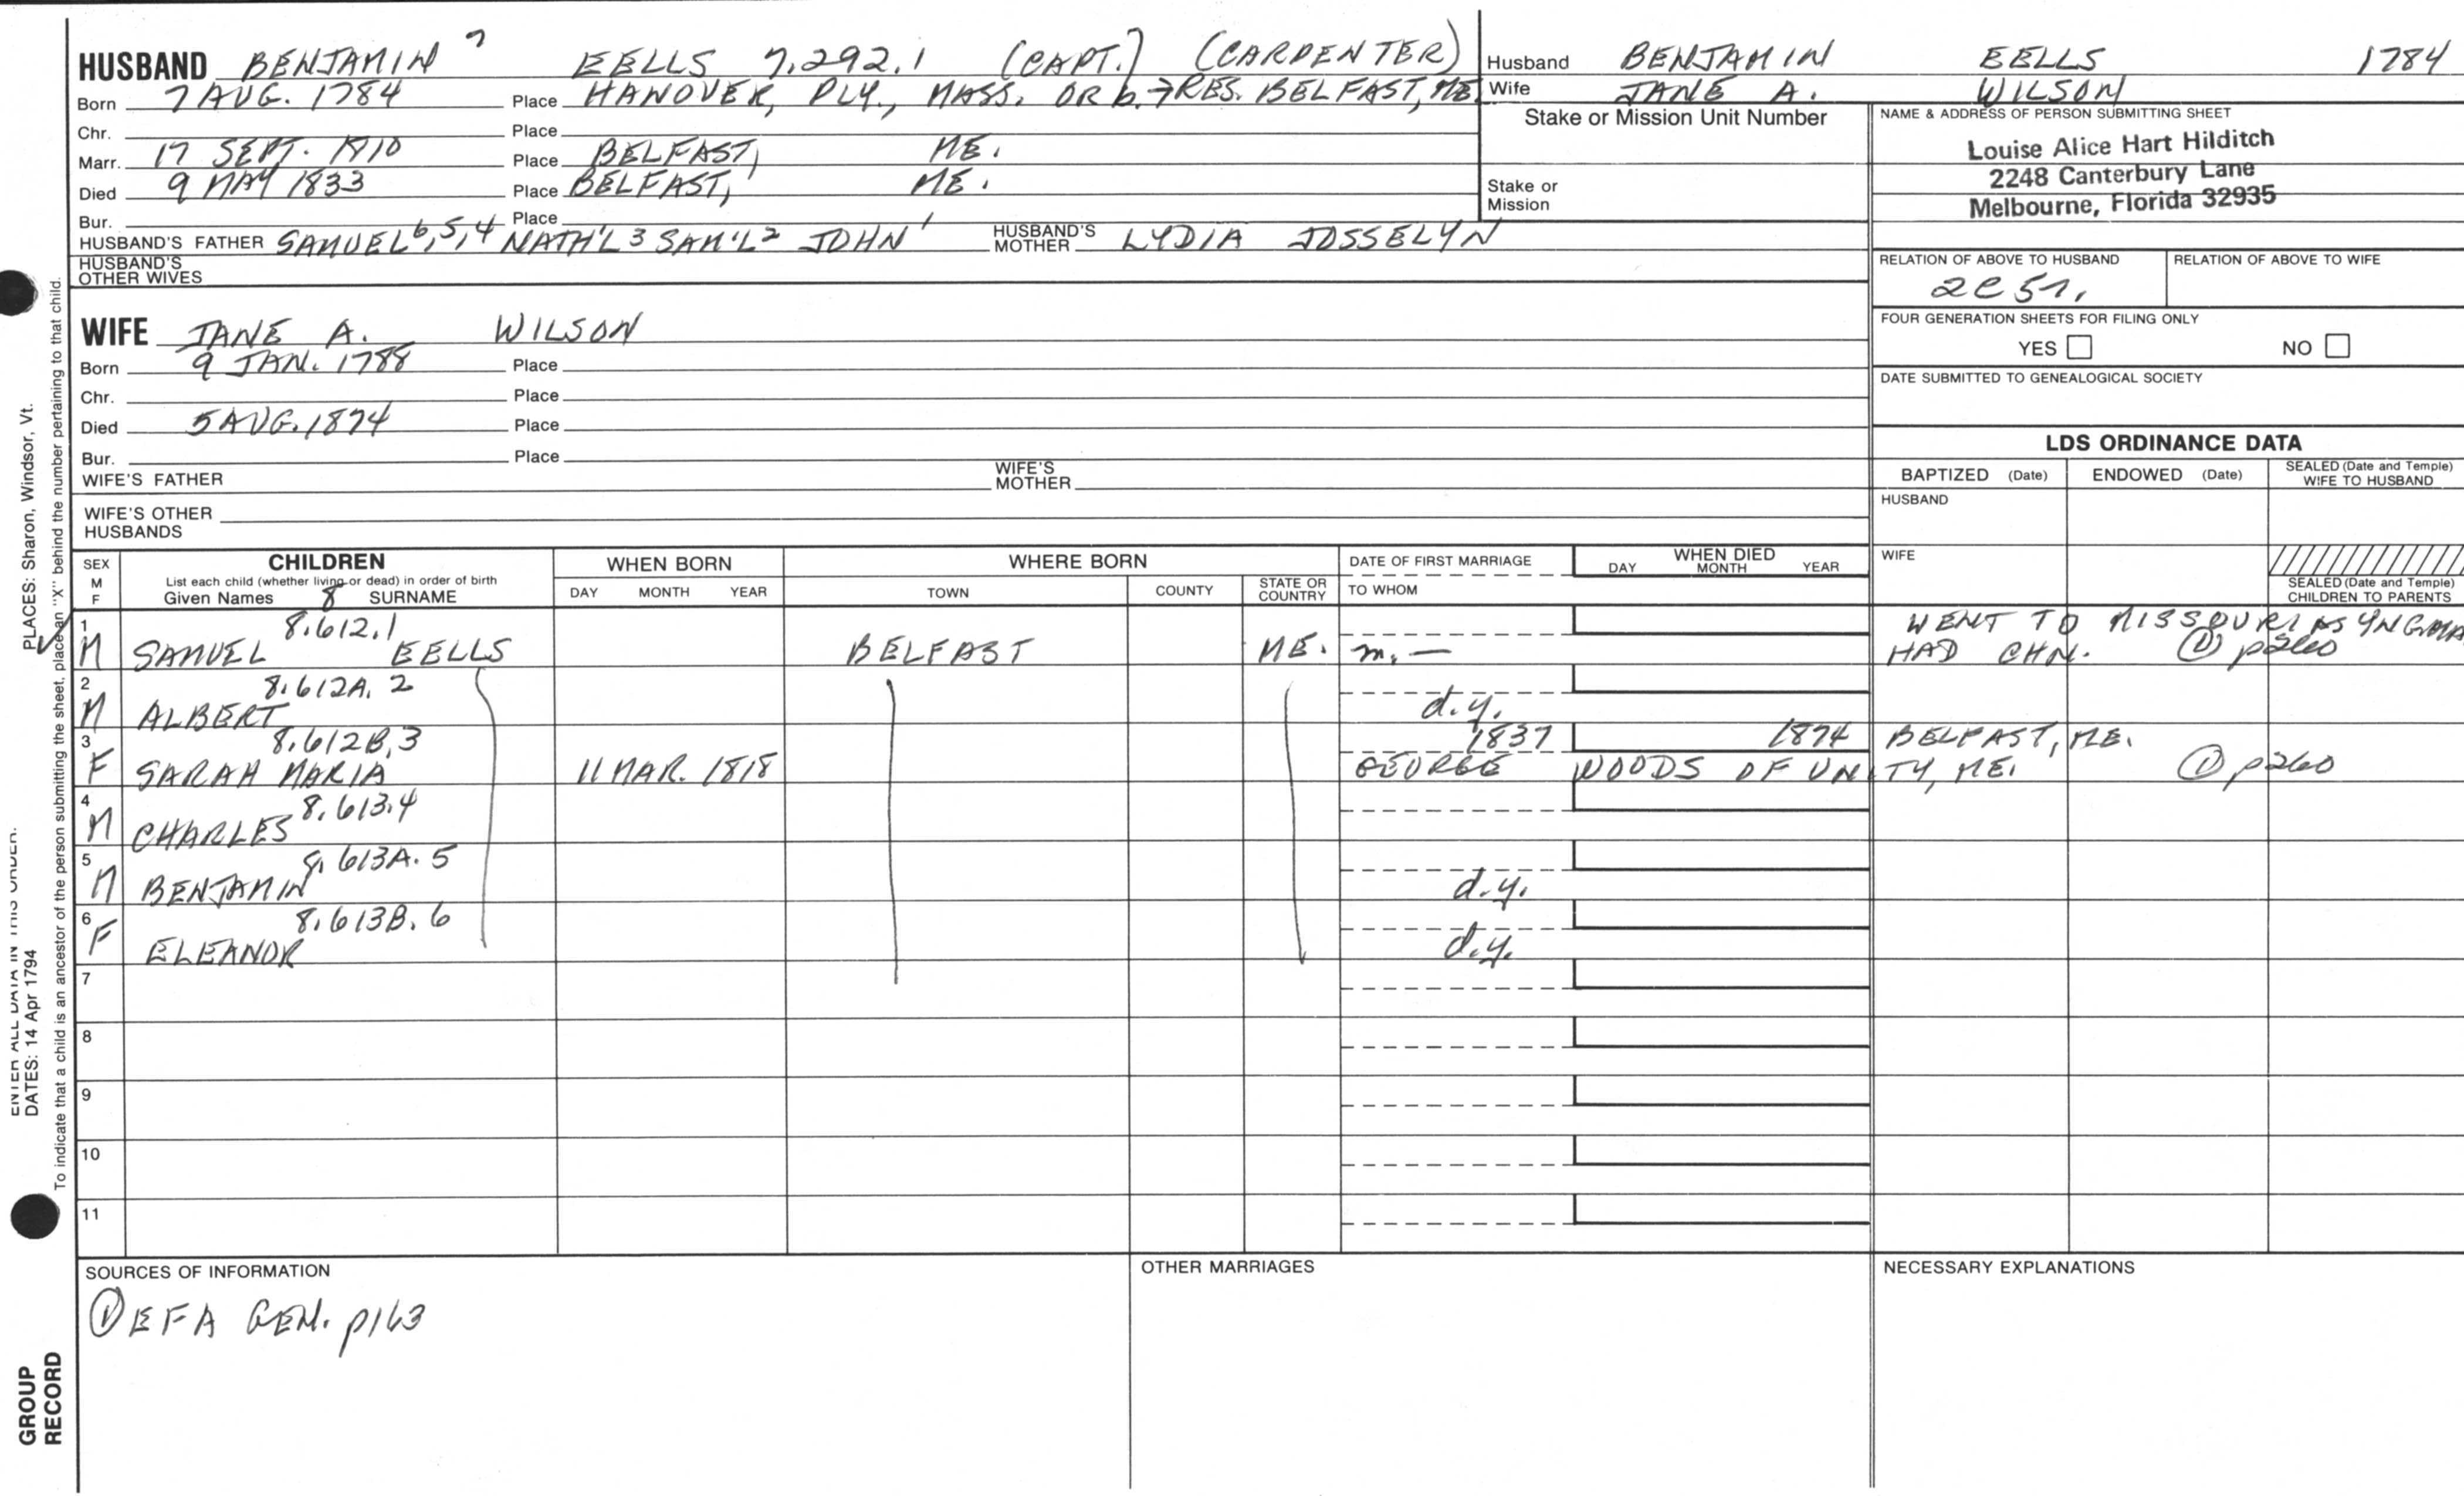 HUSBAND BENJAMIN 7 EELLS 7.292.1 (CAPT.) (CARPENTER)
Born 7 AUG. 1784 Place HANOVER, PLY., MASS. OR b. → RES. BELFAST, ME
Chr. Place
Marr. 17 SEPT. 1810 Place BELFAST, ME.
Died 9 MAY 1833 Place BELFAST, ME.
Bur. Place
HUSBAND'S FATHER SAMUEL 6,5,4 NATH'L 3 SAM'L 2 JOHN 1 HUSBAND'S MOTHER LYDIA JOSSELYN
HUSBAND'S OTHER WIVES
Husband BENJAMIN EELLS 1784
Wife JANE A. WILSON
Stake or Mission Unit Number
Stake or
Mission
NAME & ADDRESS OF PERSON SUBMITTING SHEET
Louise Alice Hart Hilditch
2248 Canterbury Lane
Melbourne, Florida 32935
RELATION OF ABOVE TO HUSBAND RELATION OF ABOVE TO WIFE
2C5r.
FOUR GENERATION SHEETS FOR FILING ONLY
YES NO
DATE SUBMITTED TO GENEALOGICAL SOCIETY
WIFE JANE A. WILSON
Born 9 JAN. 1788 Place
Chr. Place
Died 5 AUG. 1874 Place
Bur. Place
WIFE'S FATHER WIFE'S MOTHER
WIFE'S OTHER
HUSBANDS
LDS ORDINANCE DATA
BAPTIZED (Date) ENDOWED (Date) SEALED (Date and Temple) WIFE TO HUSBAND
HUSBAND
WIFE
SEALED (Date and Temple)
CHILDREN TO PARENTS
SEX M F CHILDREN WHEN BORN WHERE BORN DATE OF FIRST MARRIAGE WHEN DIED
List each child (whether living or dead) in order of birth
Given Names 8 SURNAME DAY MONTH YEAR TOWN COUNTY STATE OR COUNTRY TO WHOM DAY MONTH YEAR
1 8.612.1 WENT TO MISSOURI AS
M SAMUEL EELLS BELFAST ME. m. — HAD CHN. ① p260
2 8.612A.2
M ALBERT d.y.
3 8.612B.3 1837 1874 BELFAST, ME.
F SARAH MARIA 11 MAR. 1818 GEORGE WOODS OF UNITY, ME. ① p260
4 8.613.4
M CHARLES
5 8.613A.5
M BENJAMIN d.y.
6 8.613B.6
F ELEANOR d.y.
7
8
9
10
11
SOURCES OF INFORMATION OTHER MARRIAGES NECESSARY EXPLANATIONS
① EFA GEN. p163
PLACES: Sharon, Windsor, Vt.
To indicate that a child is an ancestor of the person submitting the sheet, place an "X" behind the number pertaining to that child.
ENTER ALL DATA IN THIS ORDER.
DATES: 14 Apr 1794
GROUP
RECORD